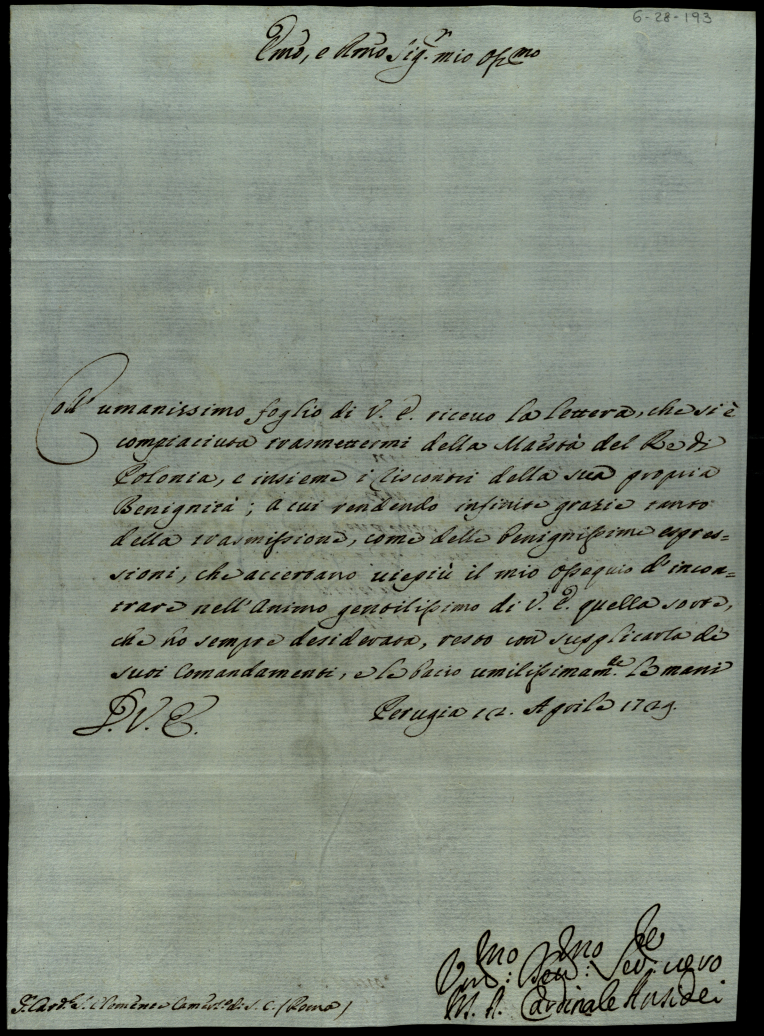 6-28-193
Emo, e Rmo Sig.r mio Ossmo
Coll' umanissimo foglio di V. E. ricevo la lettera, che si è
compiaciuta trasmettermi della Maestà del Re di
Polonia, e insieme i riscontri della sua propria
Benignità; a cui rendendo infinite grazie tanto
della trasmissione, come delle benignissime espres=
sioni, che accertano viepiù il mio ossequio d'incon=
trare nell'Animo gentilissimo di V. E. quella sorte,
che ho sempre desiderata, resto con supplicarla de
suoi Comandamenti, e le bacio umilissimam.te le mani
D. V. E.
Perugia 12. Aprile 1729.
Um:mo Dev:mo Se Ser: vero
M. A. Cardinale Ansidei
S.r Card.le S. Clemente Camerl.o di S. C. (Roma)